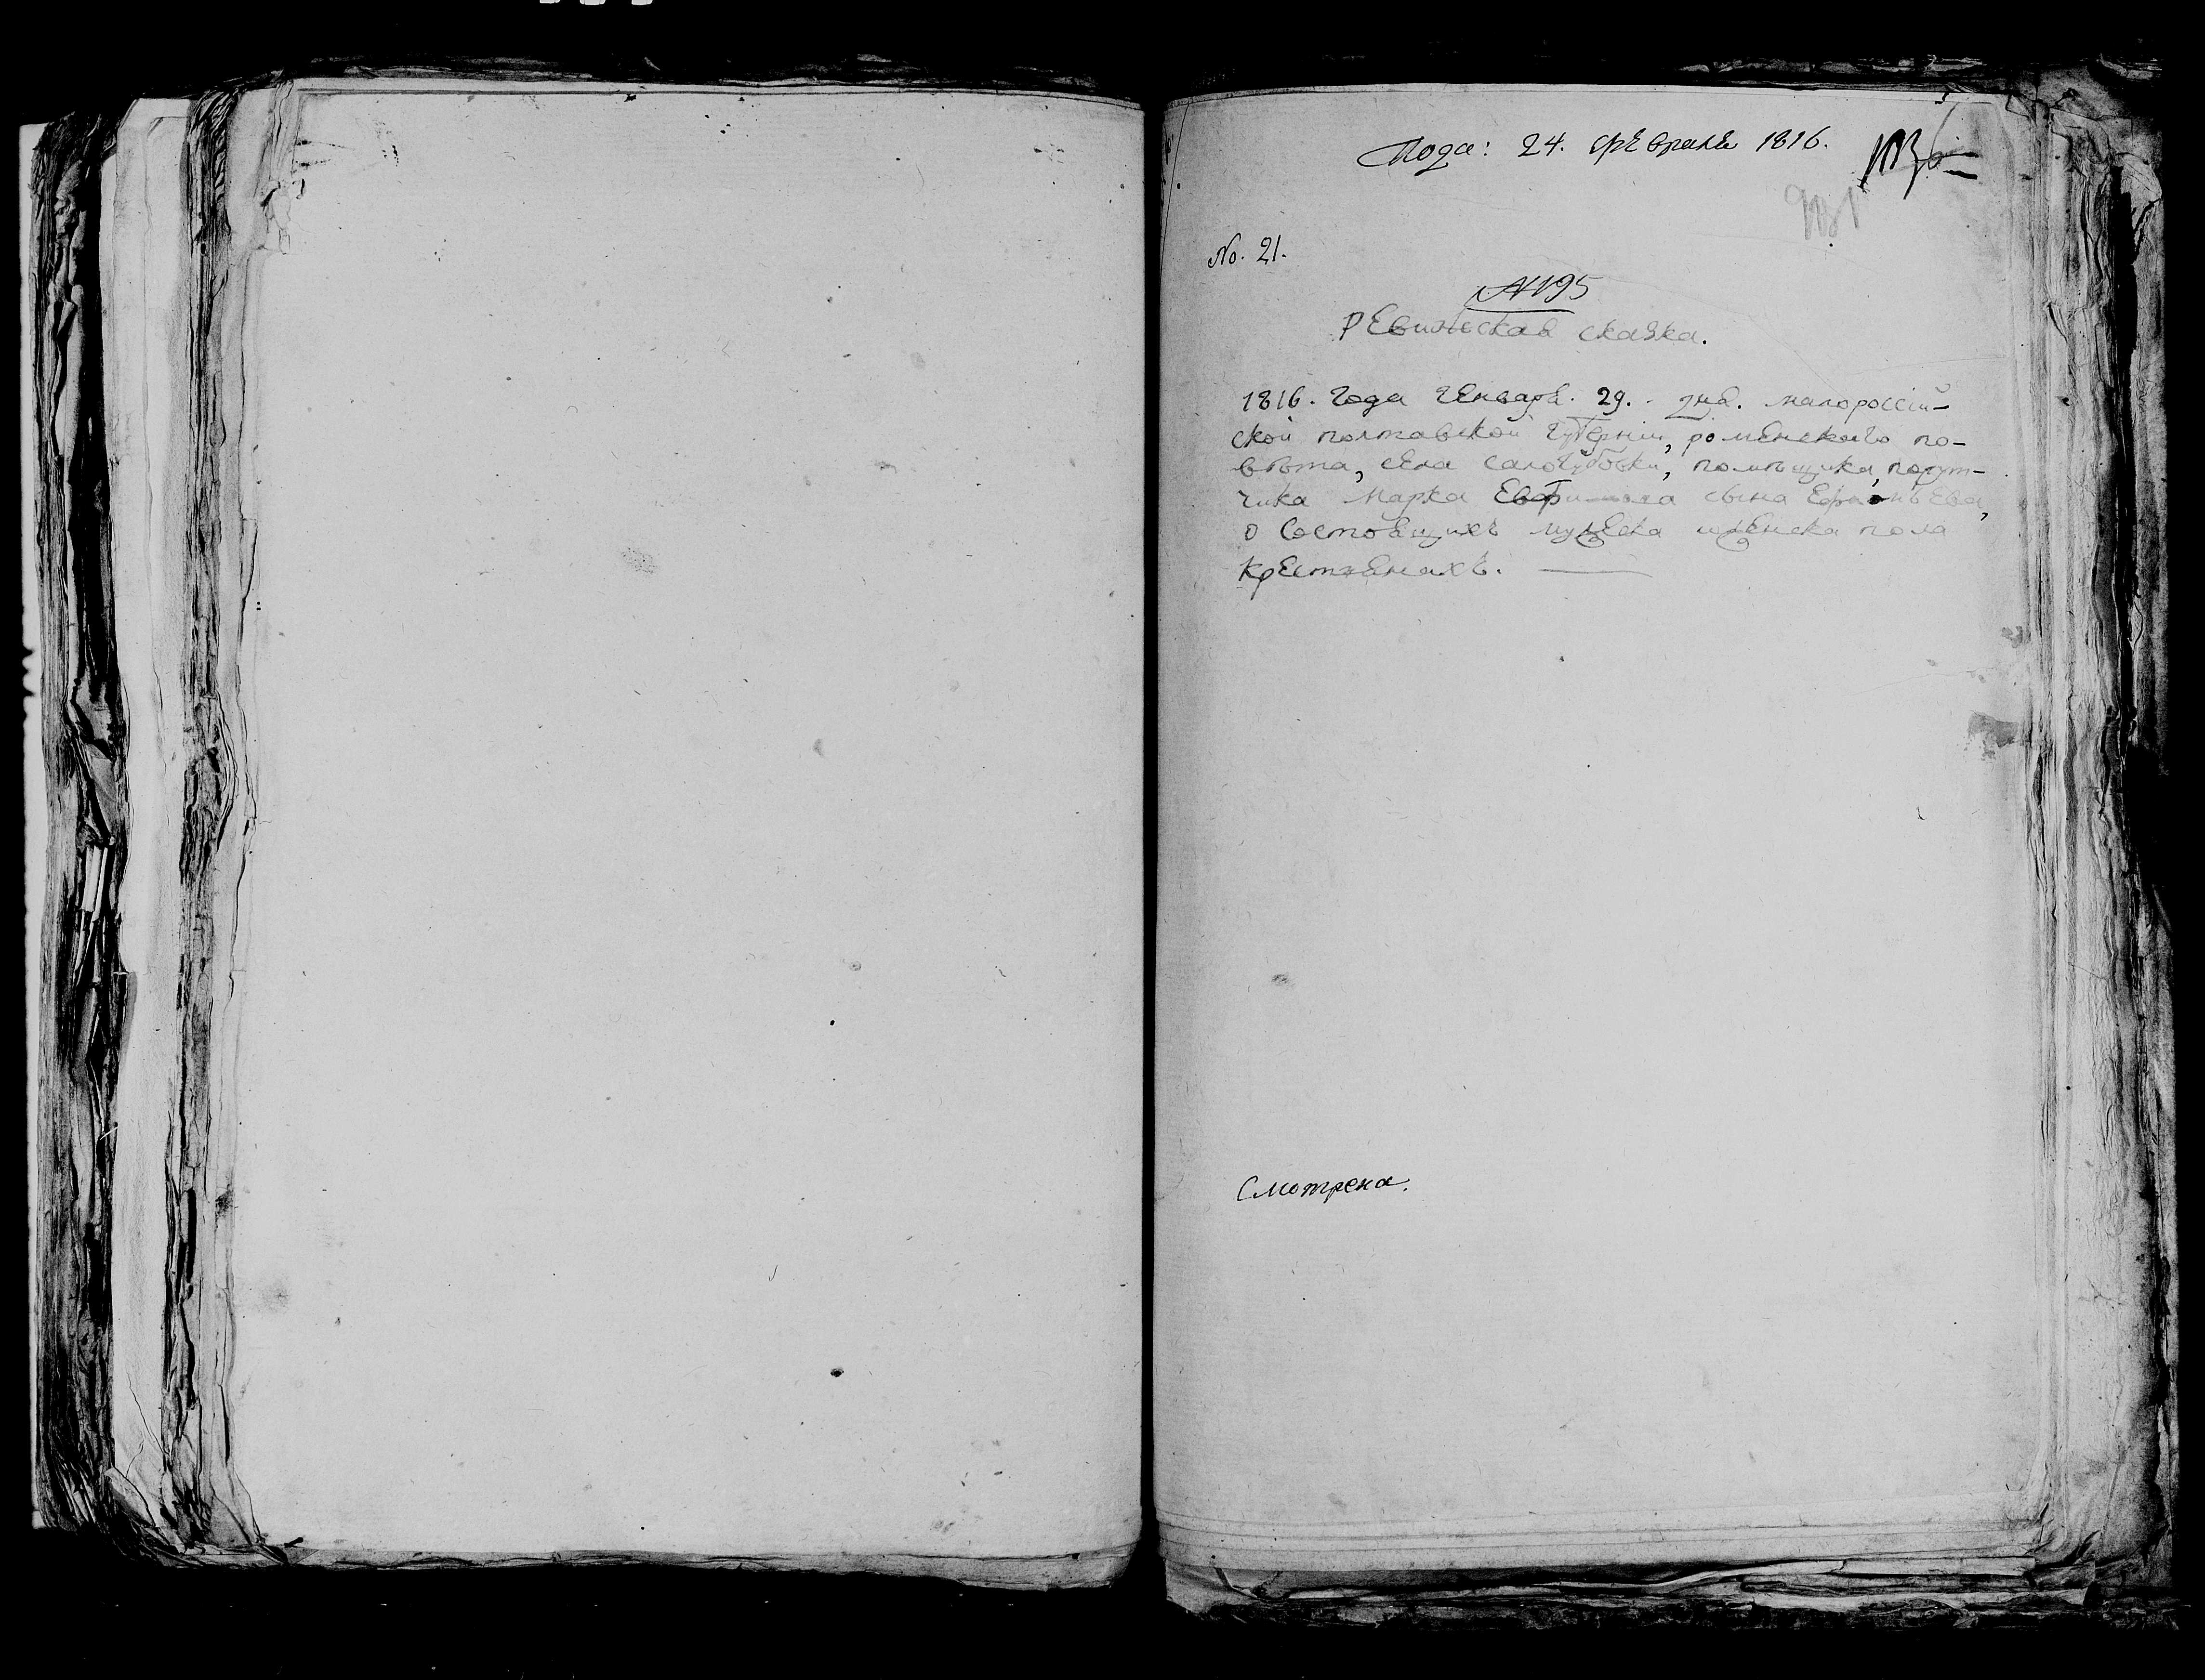 Пода: 24. февраля 1816.
No. 21.
№ 195
Ревижская сказка.
1816. года генваря. 29. дня. малороссій-
ской полтавской губерніи, роменского по-
вѣта, села салогубовки, помѣщика, порут-
чика Марка сына
о состоящихъ мужеска иженска пола
крестянахъ.
Смотрена.